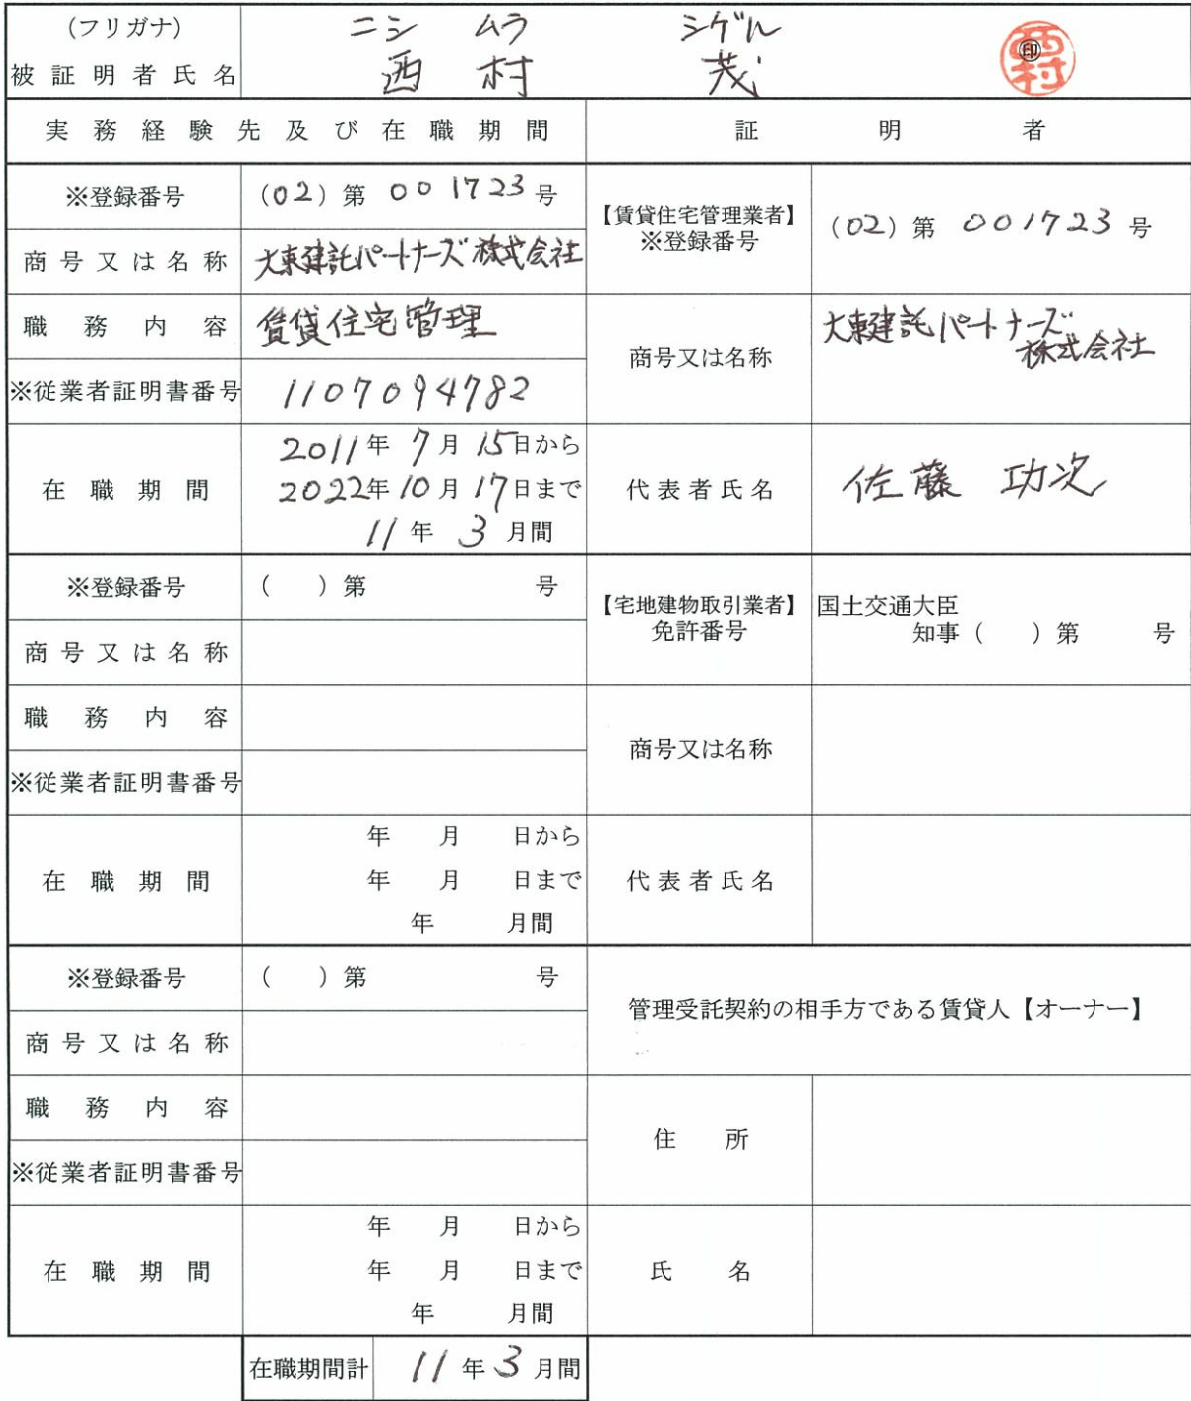 (フリガナ) ニシ ムラ シゲル
被証明者氏名 西村 茂 ㊞ 西村
実務経験先及び在職期間 証明者
※登録番号 (02)第 001723号
【賃貸住宅管理業者】
※登録番号 (02)第 001723号
商号又は名称 大東建託パートナーズ株式会社
職務内容 賃貸住宅管理
商号又は名称 大東建託パートナーズ
株式会社
※従業者証明書番号 1107094782
在職期間 2011年 7月 15日から
2022年 10月 17日まで
11年 3月間
代表者氏名 佐藤 功次
※登録番号 ( )第 号
【宅地建物取引業者】
免許番号
国土交通大臣
知事( )第 号
商号又は名称
職務内容
商号又は名称
※従業者証明書番号
在職期間 年 月 日から
年 月 日まで
年 月間
代表者氏名
※登録番号 ( )第 号
管理受託契約の相手方である賃貸人【オーナー】
商号又は名称
職務内容
住所
※従業者証明書番号
在職期間 年 月 日から
年 月 日まで
年 月間
氏名
在職期間計 11年3月間